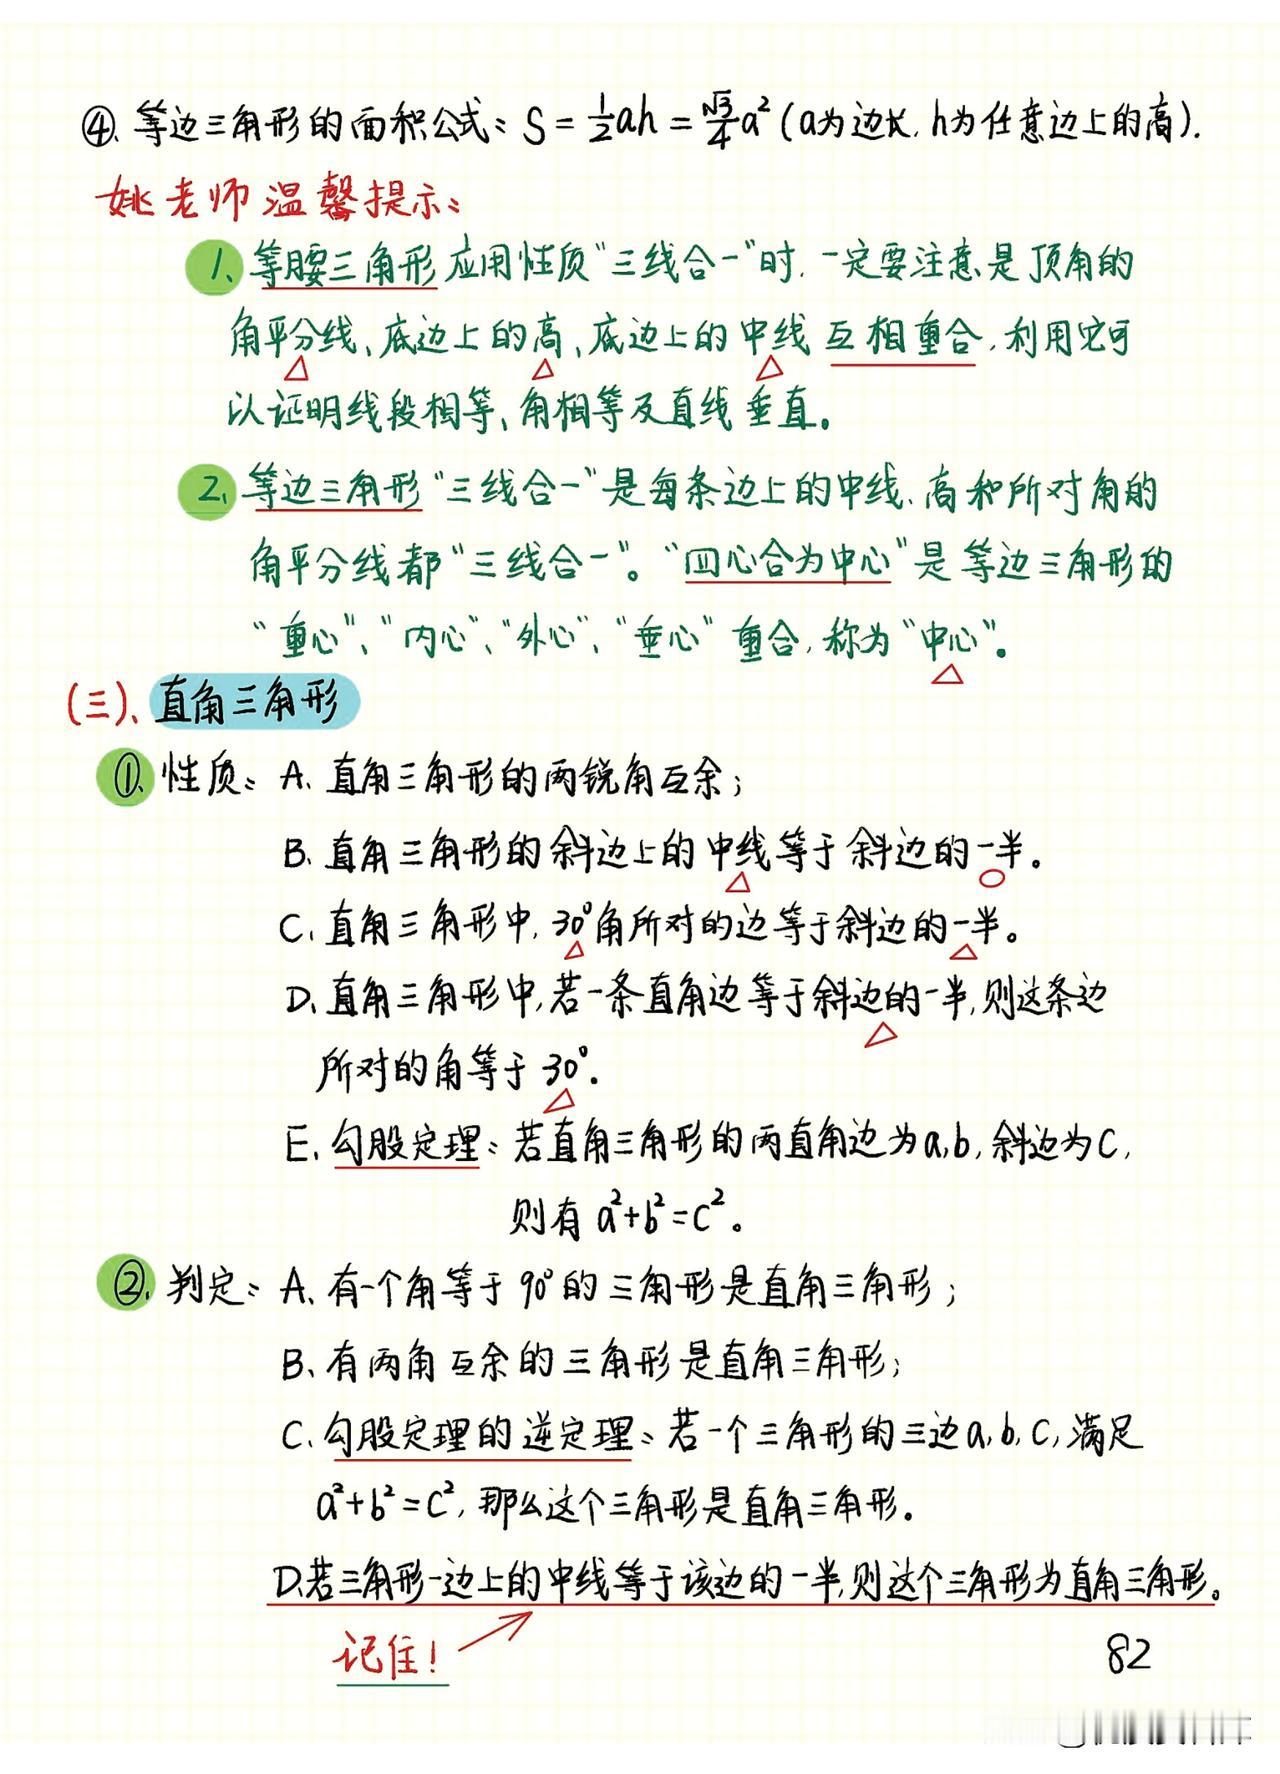 ④、等边三角形的面积公式：S=½ah=√3/4a²(a为边长，h为任意边上的高).
姚老师温馨提示：
1、等腰三角形应用性质"三线合一"时，一定要注意是顶角的
角平分线、底边上的高、底边上的中线互相重合，利用它可
以证明线段相等、角相等及直线垂直。
2、等边三角形"三线合一"是每条边上的中线、高和所对角的
角平分线都"三线合一"。"四心合为中心"是等边三角形的
"重心"、"内心"、"外心"、"垂心"重合，称为"中心"。
(三)、直角三角形
①、性质：A、直角三角形的两锐角互余；
B、直角三角形的斜边上的中线等于斜边的一半。
C、直角三角形中，30°角所对的边等于斜边的一半。
D、直角三角形中，若一条直角边等于斜边的一半，则这条边
所对的角等于30°.
E、勾股定理：若直角三角形的两直角边为a,b，斜边为c，
则有a²+b²=c²。
②、判定：A、有一个角等于90°的三角形是直角三角形；
B、有两角互余的三角形是直角三角形；
C、勾股定理的逆定理：若一个三角形的三边a,b,c,满足
a²+b²=c²，那么这个三角形是直角三角形.
D、若三角形一边上的中线等于该边的一半，则这个三角形为直角三角形。
记住！
82